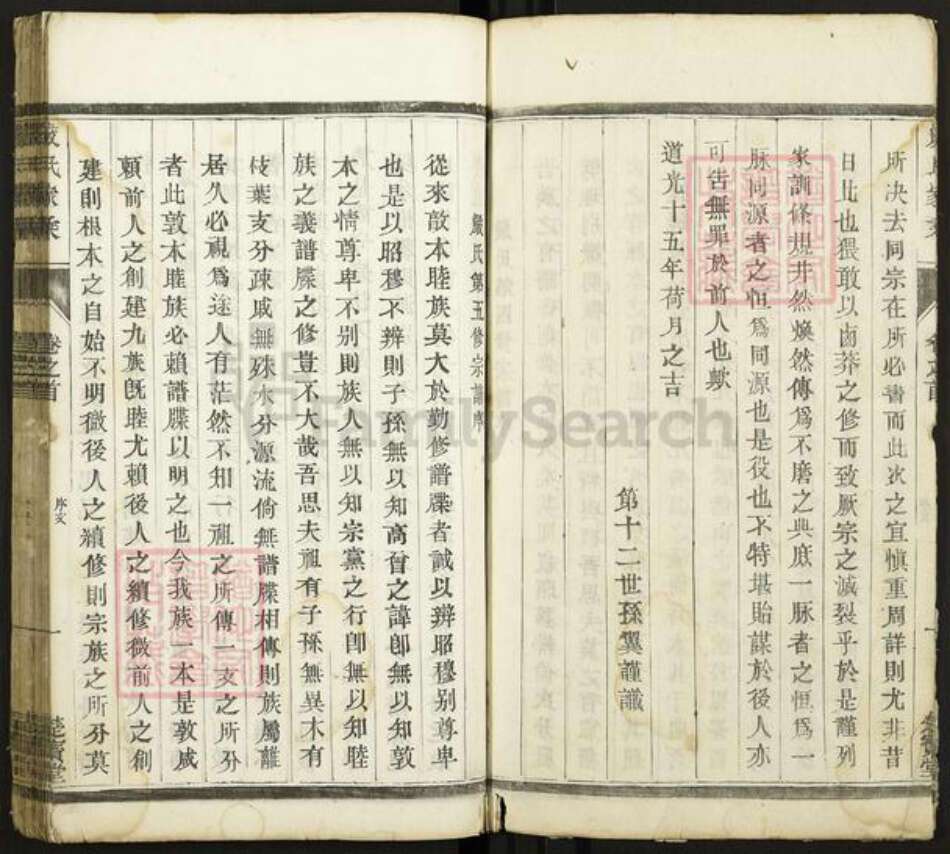 所决去同宗在所必書而此次之宜慎重周詳則尤非昔
日比也猥敢以鹵莽之修而致厥宗之滅裂乎於是謹列
家訓條規井然煥然傳爲不磨之典庶一脉者之恒爲一
脉同源者之恒爲同源也是役也不特堪貽謀於後人亦
可告無罪於前人也歟
道光十五年荷月之吉
第十二世孫翼謹識
嚴氏第五修宗譜序
從來敦本睦族莫大於勤修譜牒者誠以辨昭穆别尊卑
也是以昭穆不辨則子孫無以知高曾之諱卽無以知敦
本之情尊卑不别則族人無以知宗黨之行卽無以知睦
族之義譜牒之修豈不大哉吾思夫祖有子孫無異木有
枝葉支分疎戚無殊水分源流倘無譜牒相傳則族屬離
居久必視爲途人有茫然不知一祖之所傳一支之所分
者此敦本睦族必賴譜牒以明之也今我族一本是敦咸
賴前人之創建九族旣睦尤賴後人之續修微前人之創
建則根本之自始不明微後人之續修則宗族之所分莫
氏家乘
卷之首
序文
一
FamilySearch